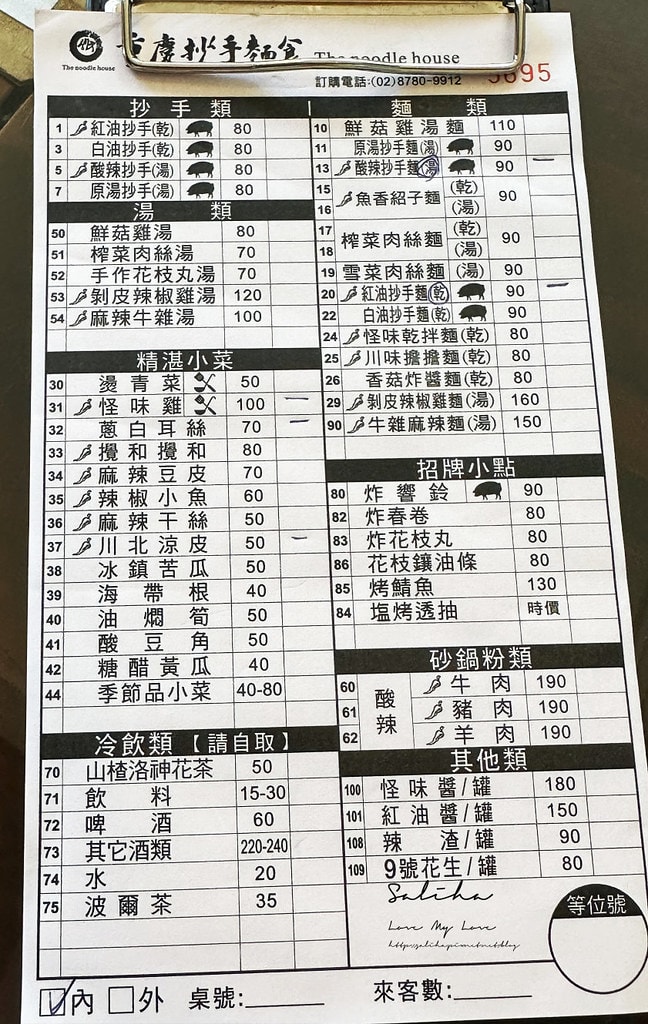 The noodle house
重慶抄手麵食 The noodle house
訂購電話:(02)8780-9912
5695
抄手類
1 紅油抄手(乾) 80
3 白油抄手(乾) 80
5 酸辣抄手(湯) 80
7 原湯抄手(湯) 80
湯類
50 鮮菇雞湯 80
51 榨菜肉絲湯 70
52 手作花枝丸湯 70
53 剝皮辣椒雞湯 120
54 麻辣牛雜湯 100
精湛小菜
30 燙青菜 50
31 怪味雞 100 一
32 蔥白耳絲 70 一
33 攪和攪和 80
34 麻辣豆皮 70
35 辣椒小魚 60
36 麻辣干絲 50
37 川北涼皮 50 一
38 冰鎮苦瓜 50
39 海帶根 40
40 油燜筍 50
41 酸豆角 50
42 糖醋黃瓜 40
44 季節品小菜 40-80
冷飲類【請自取】
70 山楂洛神花茶 50
71 飲料 15-30
72 啤酒 60
73 其它酒類 220-240
74 水 20
75 波爾茶 35
麵類
10 鮮菇雞湯麵 110
11 原湯抄手麵(湯) 90
13 酸辣抄手麵(湯) 90 一
15 魚香紹子麵 (乾) 90
16 (湯)
17 榨菜肉絲麵 (乾) 90
18 (湯)
19 雪菜肉絲麵(湯) 90
20 紅油抄手麵(乾) 90 一
22 白油抄手麵(乾) 90
24 怪味乾拌麵(乾) 80
25 川味擔擔麵(乾) 80
26 香菇炸醬麵(乾) 80
29 剝皮辣椒雞麵(湯) 160
90 牛雜麻辣麵(湯) 150
招牌小點
80 炸響鈴 90
82 炸春卷 80
83 炸花枝丸 80
86 花枝鑲油條 80
85 烤鯖魚 130
84 塩烤透抽 時價
砂鍋粉類
酸辣
60 牛肉 190
61 豬肉 190
62 羊肉 190
其他類
100 怪味醬/罐 180
101 紅油醬/罐 150
108 辣渣/罐 90
109 9號花生/罐 80
Saliha
Love My Love
等位號
內 外 桌號: 來客數: